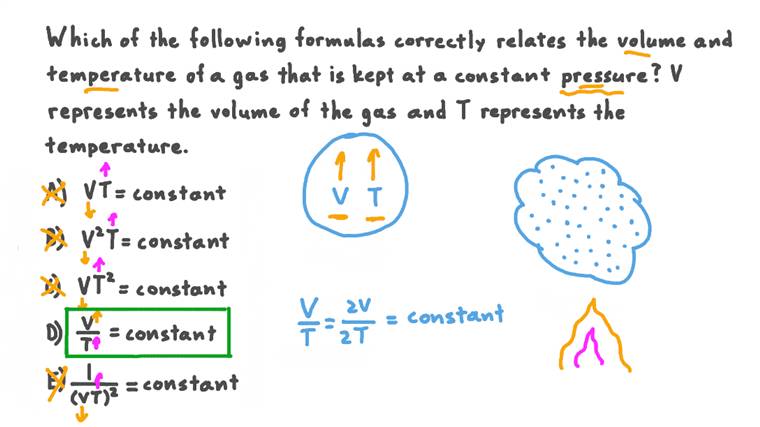 Which of the following formulas correctly relates the volume and
temperature of a gas that is kept at a constant pressure? V
represents the volume of the gas and T represents the
temperature.
A) VT = constant
B) V²T = constant
C) VT² = constant
D) V/T = constant
E) 1/(VT)² = constant
V T
V/T = 2V/2T = constant